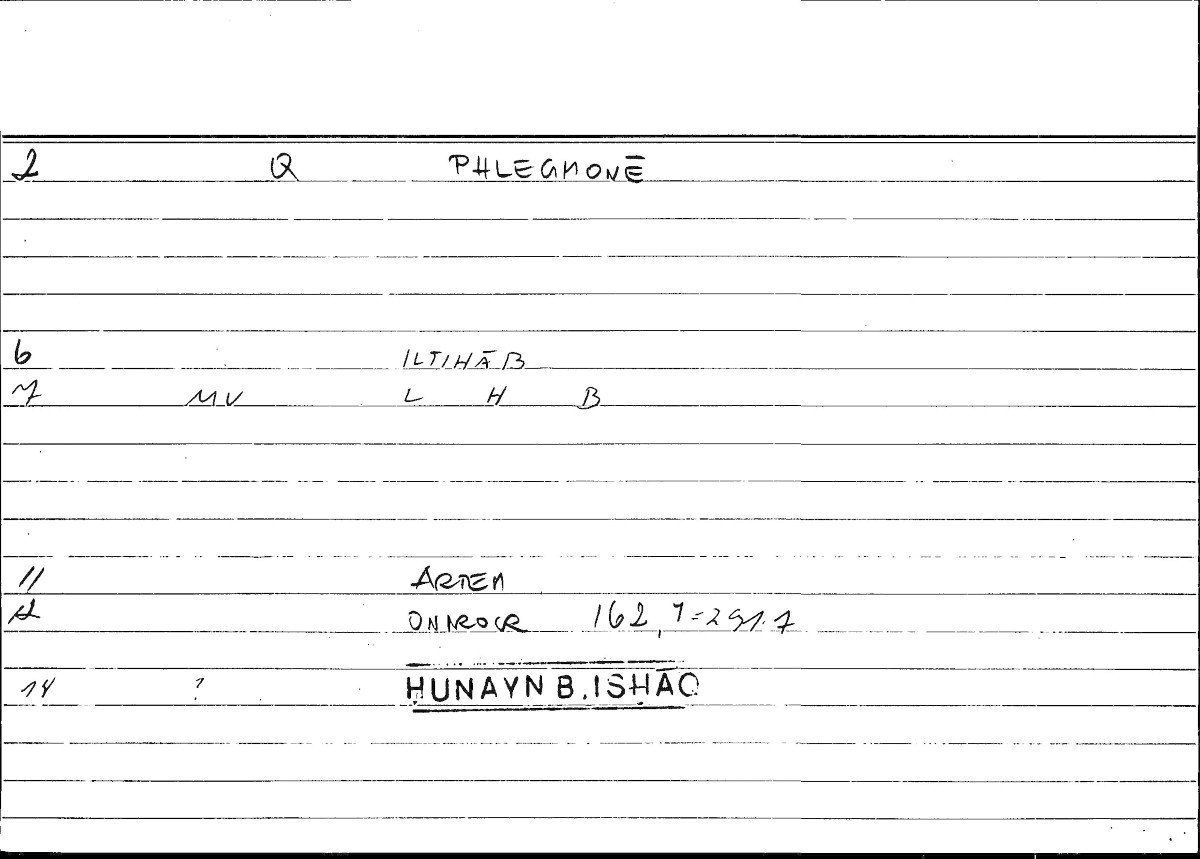 2 Q PHLEGMONĒ
6 ILTIHĀB
7 MV L H B
11 ARTEM
12 ONIROCR 162,7=291.7
14 ? ḤUNAYN B. ISḤĀQ